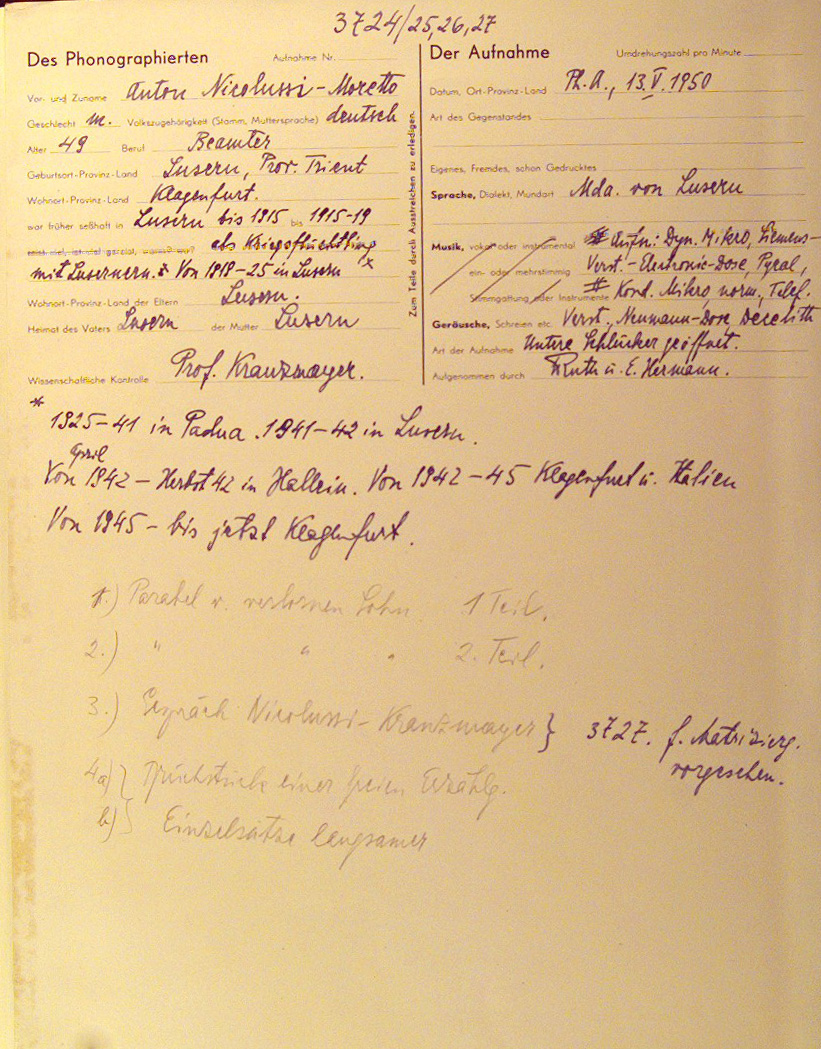 3724/25,26,27
Des Phonographierten Aufnahme Nr.
Vor- und Zuname Anton Nicolussi-Moretto
Geschlecht m. Volkszugehörigkeit (Stamm, Muttersprache) deutsch
Alter 49 Beruf Beamter
Geburtsort-Provinz-Land Lusern, Prov. Trient
Wohnort-Provinz-Land Klagenfurt.
war früher seßhaft in Lusern bis 1915 bis 1915-19
als Kriegsflüchtling
mit Lusernern. Von 1918-25 in Lusern *
Wohnort-Provinz-Land der Eltern Lusern.
Heimat des Vaters Lusern der Mutter Lusern
Wissenschaftliche Kontrolle Prof. Kranzmayer.
Zum Teile durch Ausstreichen zu erledigen.
Der Aufnahme Umdrehungszahl pro Minute
Datum, Ort-Provinz-Land Ph. A., 13. V. 1950
Art des Gegenstandes
Eigenes, Fremdes, schon Gedrucktes
Sprache, Dialekt, Mundart Mda. von Lusern
Musik, vokal oder instrumental # Aufn: Dyn. Mikro, Siemens-
ein- oder mehrstimmig Verst.-Electronic-Dose, Pyral,
Stimmgattung oder Instrumente # Kond. Mikro, norm., Telef.
Geräusche, Schreien etc. Verst., Neumann-Dose, Decelith
Art der Aufnahme Untere Schlücker geöffnet.
Aufgenommen durch Ruth u. E. Hermann.
* 1925-41 in Padua. 1941-42 in Lusern.
April
Von 1942 - Herbst 42 in Hallein. Von 1942-45 Klagenfurt u. Italien
Von 1945 - bis jetzt Klagenfurt.
1.) Parabel v. verlornen Sohn 1 Teil.
2.) " " " 2. Teil.
3.) Gespräch Nicolussi-Kranzmayer } 3727. f. Matrizierg.
vorgesehen.
4a) } Bruchstücke einer freien Erzählg.
b) } Einzelsätze langsamer